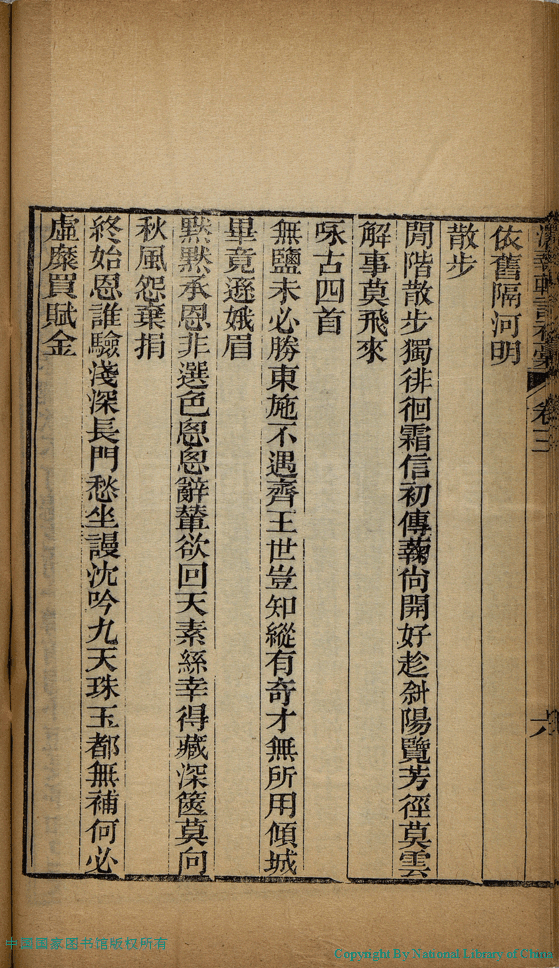 卷三
六
依舊隔河明
散步
閒階散步獨徘徊霜信初傳蘜尙開好趁斜陽覽芳徑莫雲
解事莫飛來
咏古四首
無鹽未必勝東施不遇齊王世豈知縱有奇才無所用傾城
畢竟遜娥眉
默默承恩非選色悤悤辭輦欲回天素絲幸得藏深篋莫向
秋風怨棄捐
終始恩誰驗淺深長門愁坐謾沈吟九天珠玉都無補何必
虛糜買賦金
中國国家图书馆版权所有
Copyright By National Library of China